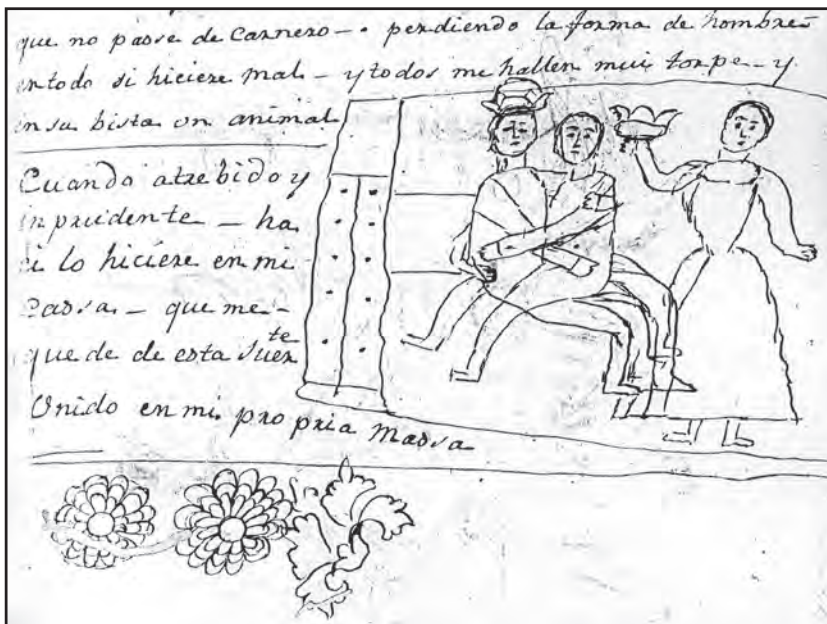 que no passe de Carnero — . perdiendo la forma de hombre
en todo si hiciere mal — y todos me hallen mui torpe — y
en su bista un animal
Cuando atrebido y
inprudente — ha
si lo hiciere en mi
Cassa — que me -
que de de esta suerte
Unido en mi propria Massa